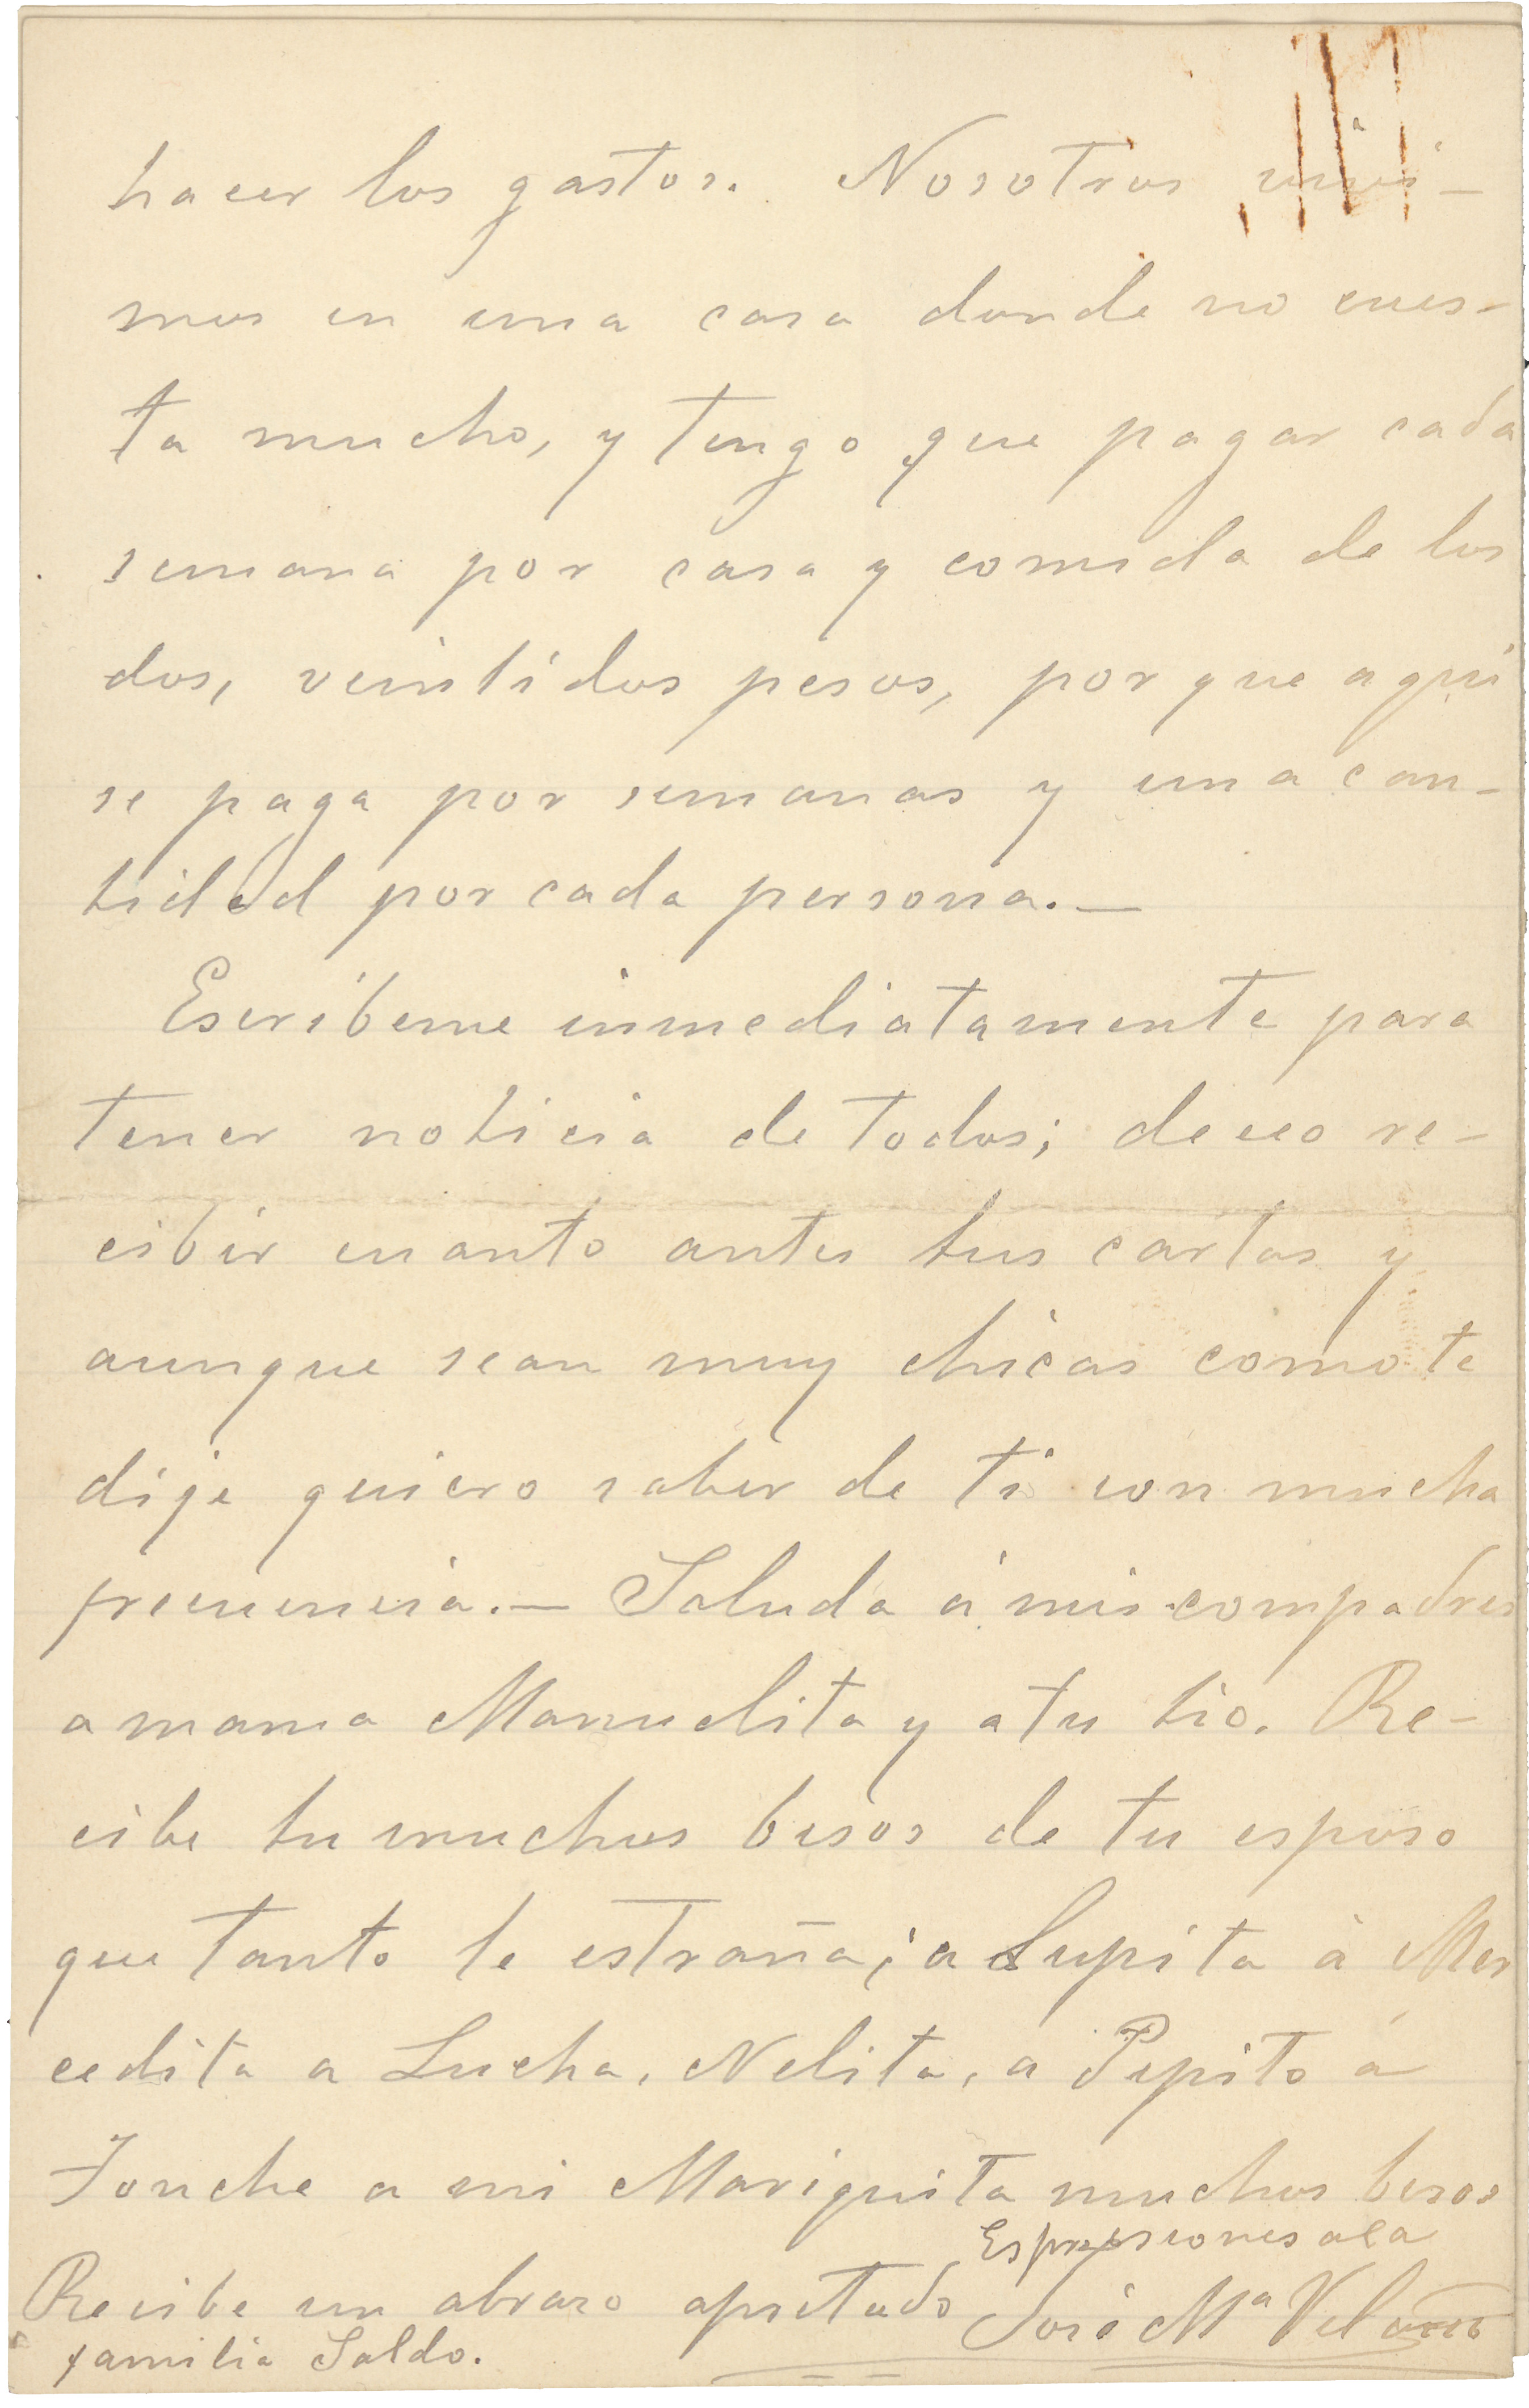 hacer los gastos. Nosotros vivi-
mos en una casa donde no cues-
ta mucho, y tengo que pagar cada
semana por casa y comida de los
dos, veintidos pesos, por que aqui
se paga por semanas y una can-
tidad por cada persona.—
Escríbeme inmediatamente para
tener noticia de todos; deceo re-
cibir cuanto antes tus cartas y
aunque sean muy chicas como te
dije quiero saber de ti con mucha
frecuencia.— Saluda á mis compadres
a mama Manuelita y a tu tio. Re-
cibe tu muchos besos de tu esposo
que tanto te estraña; a Lupita á Mer
cedita a Lucha, Nelita, a Pepito á
Fonche a mi Mariquita muchos besos
Espresiones a la
Recibe un abrazo apretado José Mª Velasco
familia Saldo.